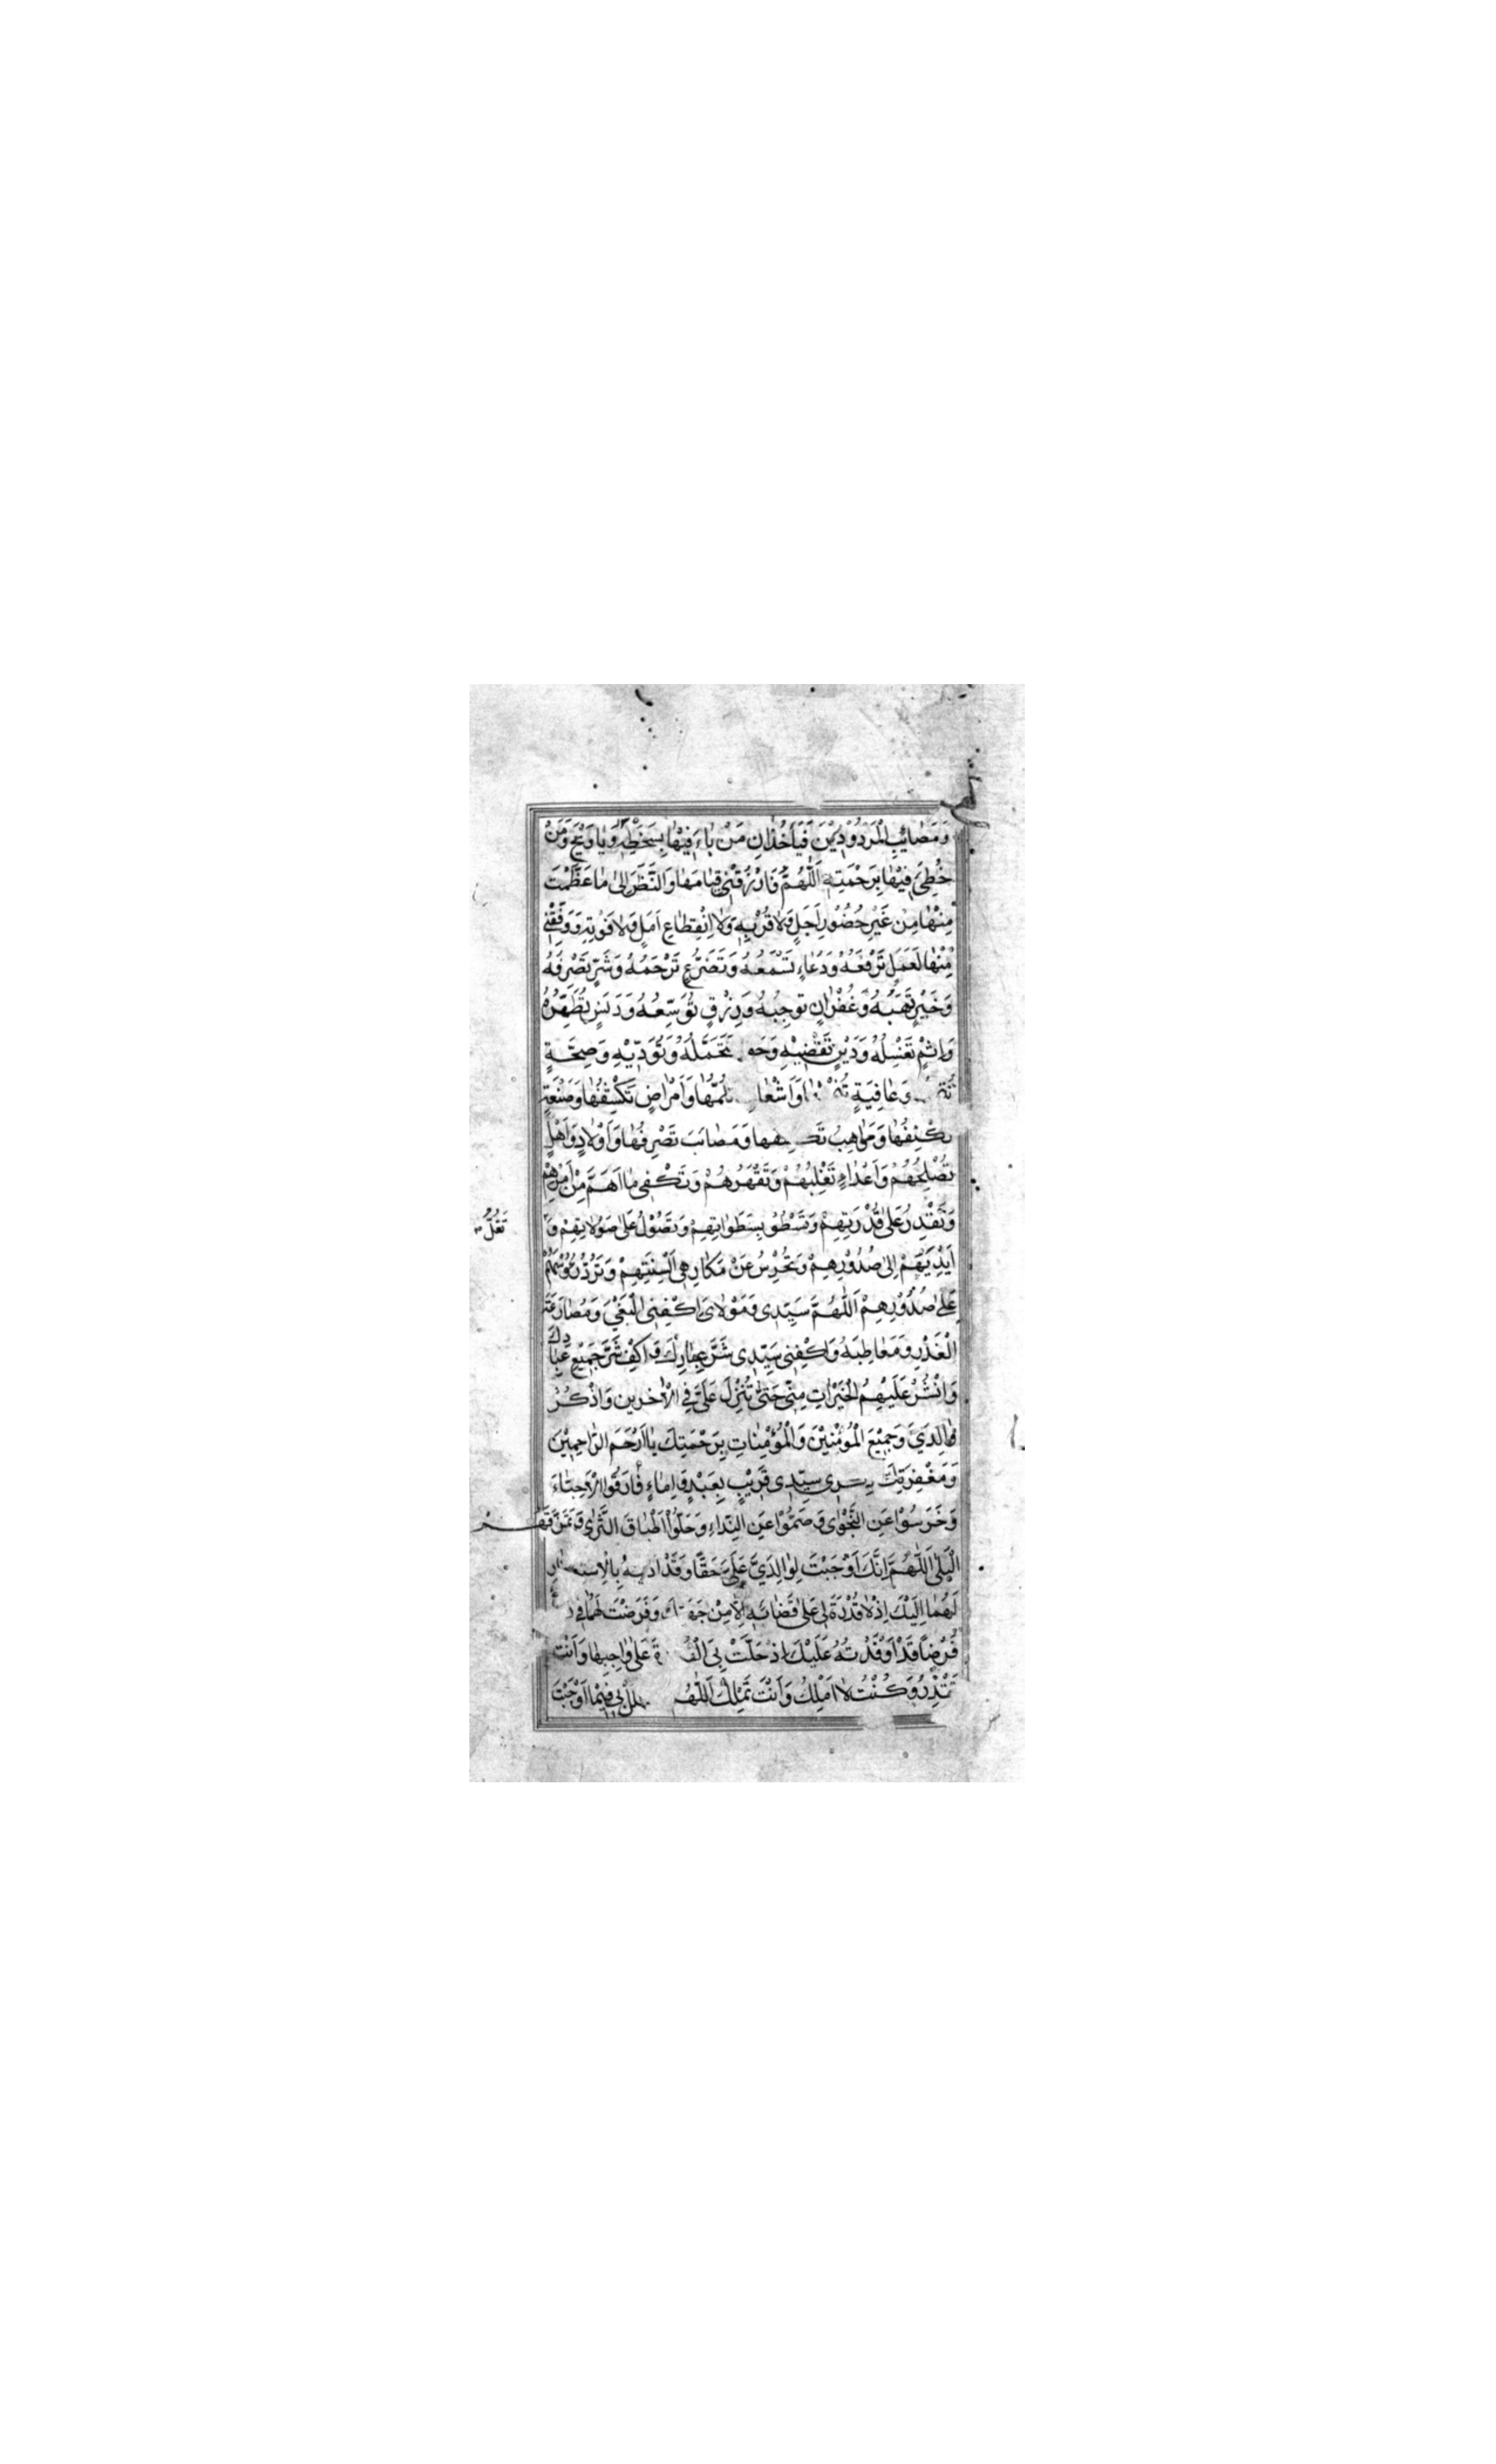 وَمَصٰائِبِ الْمَرْدُوْدِيْنَ فَيٰاخُذْلانِ مَنْ بٰاءَ فِيْهٰا بِسَخَطِهِ وَيٰا وَيْحَ مَنْ
خُطِيَ فِيْهٰا بِرَحْمَتِهِ اَللّٰهُمَّ فَارْزُقْنِي قِيٰامَهٰا وَالنَّظَرَ اِلىٰ مٰا عَظَّمْتَ
مِنْهٰا مِنْ غَيْرِ حُضُوْرِ اَجَلٍ وَلاٰ قُرْبِهِ وَلاٰ اِنْقِطٰاعِ اَمَلٍ وَلاٰ فَوْتِهِ وَوَفِّقْنِي
مِنْهٰا لَعَمَلٍ تَرْفَعُهُ وَدُعٰاءٍ تَسْمَعُهُ وَتَضَرُّعٍ تَرْحَمُهُ وَشَرٍّ تَصْرِفُهُ
وَخَيْرٍ تَهَبُهُ وَغُفْرٰانٍ تُوجِبُهُ وَرِزْقٍ تُوَسِّعُهُ وَدَنَسٍ تُطَهِّرُهُ
وَاِثْمٍ تَغْسِلُهُ وَدَيْنٍ تَقْضِيْهِ وَ تَتَحَمَّلُهُ وَتُؤَدِّيْهِ وَصِحَّةٍ
وَعٰافِيَةٍ وَاَشْعٰا تَلُمُّهٰا وَاَمْرٰاضٍ تَكْشِفُهٰا وَصَنْعَةٍ
تَكْنِفُهٰا وَمَوٰاهِبُ وَمَصٰائِبَ تَصْرِفُهٰا وَاَوْلاٰدٍ وَاَهْلٍ
تُصْلِحُهُمْ وَاَعْدٰاءٍ تَغْلِبُهُمْ وَتَقْهَرُهُمْ وَتَكْفِي مٰا اَهَمَّ مِنْ اَمْرِهِمْ
وَتَقْدِرُ عَلىٰ قُدْرَتِهِمْ وَتَسْطُوْ بِسَطَوٰاتِهِمْ وَتَصُوْلُ عَلىٰ صَوْلاٰتِهِمْ وَ تَغُلُّ
اَيْدِيَهُمْ اِلىٰ صُدُوْرِهِمْ وَتُخْرِسُ عَنْ مَكٰارِهِي اَلْسِنَتَهُمْ وَتَرُدُّ رُؤُسَهُمْ
عَلىٰ صُدُوْرِهِمْ اَللّٰهُمَّ سَيِّدِي وَمَوْلاٰيَ اِكْفِنِي الْبَغْيَ وَمُصٰارَعَةَ
الْغَدْرِ وَمَعٰاطِبَهُ وَاكْفِنِي سَيِّدِي شَرَّ عِبٰادِكَ وَاكْفِ شَرَّ جَمِيْعِ عِبٰادِكَ
وَانْشُرْ عَلَيْهِمُ الْخَيْرٰاتِ مِنِّي حَتّىٰ تُنْزِلَ عَلَيَّ فِي الْاٰخِرِينَ وَاذْكُرْ
وٰالِدَيَّ وَجَمِيْعَ الْمُؤْمِنِيْنَ وَالْمُؤْمِنٰاتِ بِرَحْمَتِكَ يٰا اَرْحَمَ الرّٰاحِمِيْنَ
وَمَغْفِرَتِكَ سَيِّدِي قَرِيْبٍ بِعَبْدٍ وَاِمٰاءٍ فٰارَقُوا الْاَحِبّٰاءَ
وَخَرَسُوْا عَنِ النَّجْوٰى وَصَمُّوْا عَنِ النِّدٰاءِ وَحَلُّوْا اَطْبٰاقَ الثَّرٰى وَتَمَزَّقَهُمُ
الْبَلىٰ اَللّٰهُمَّ اِنَّكَ اَوْجَبْتَ لِوٰالِدَيَّ عَلَيَّ حَقًّا وَقَدْ بِالْاِسْتِغْفٰارِ
لَهُمٰا اِلَيْكَ اِذْ لاٰ قُدْرَةَ لِي عَلىٰ قَضٰائِهِ اِلّاٰ مِنْ وَفَرَضْتَ لَهُمٰا فِي
فَرْضًا قَدْ اَوْفَدْتُهُ عَلَيْكَ اِذْ خَلَّتْ بِيَ عَلىٰ وٰاجِبِهٰا وَاَنْتَ
تَقْتَدِرُ وَكُنْتُ لاٰ اَمْلِكُ وَاَنْتَ تَمْلِكُ اَللّٰهُمَّ بِي فِيْمٰا اَوْجَبْتَ